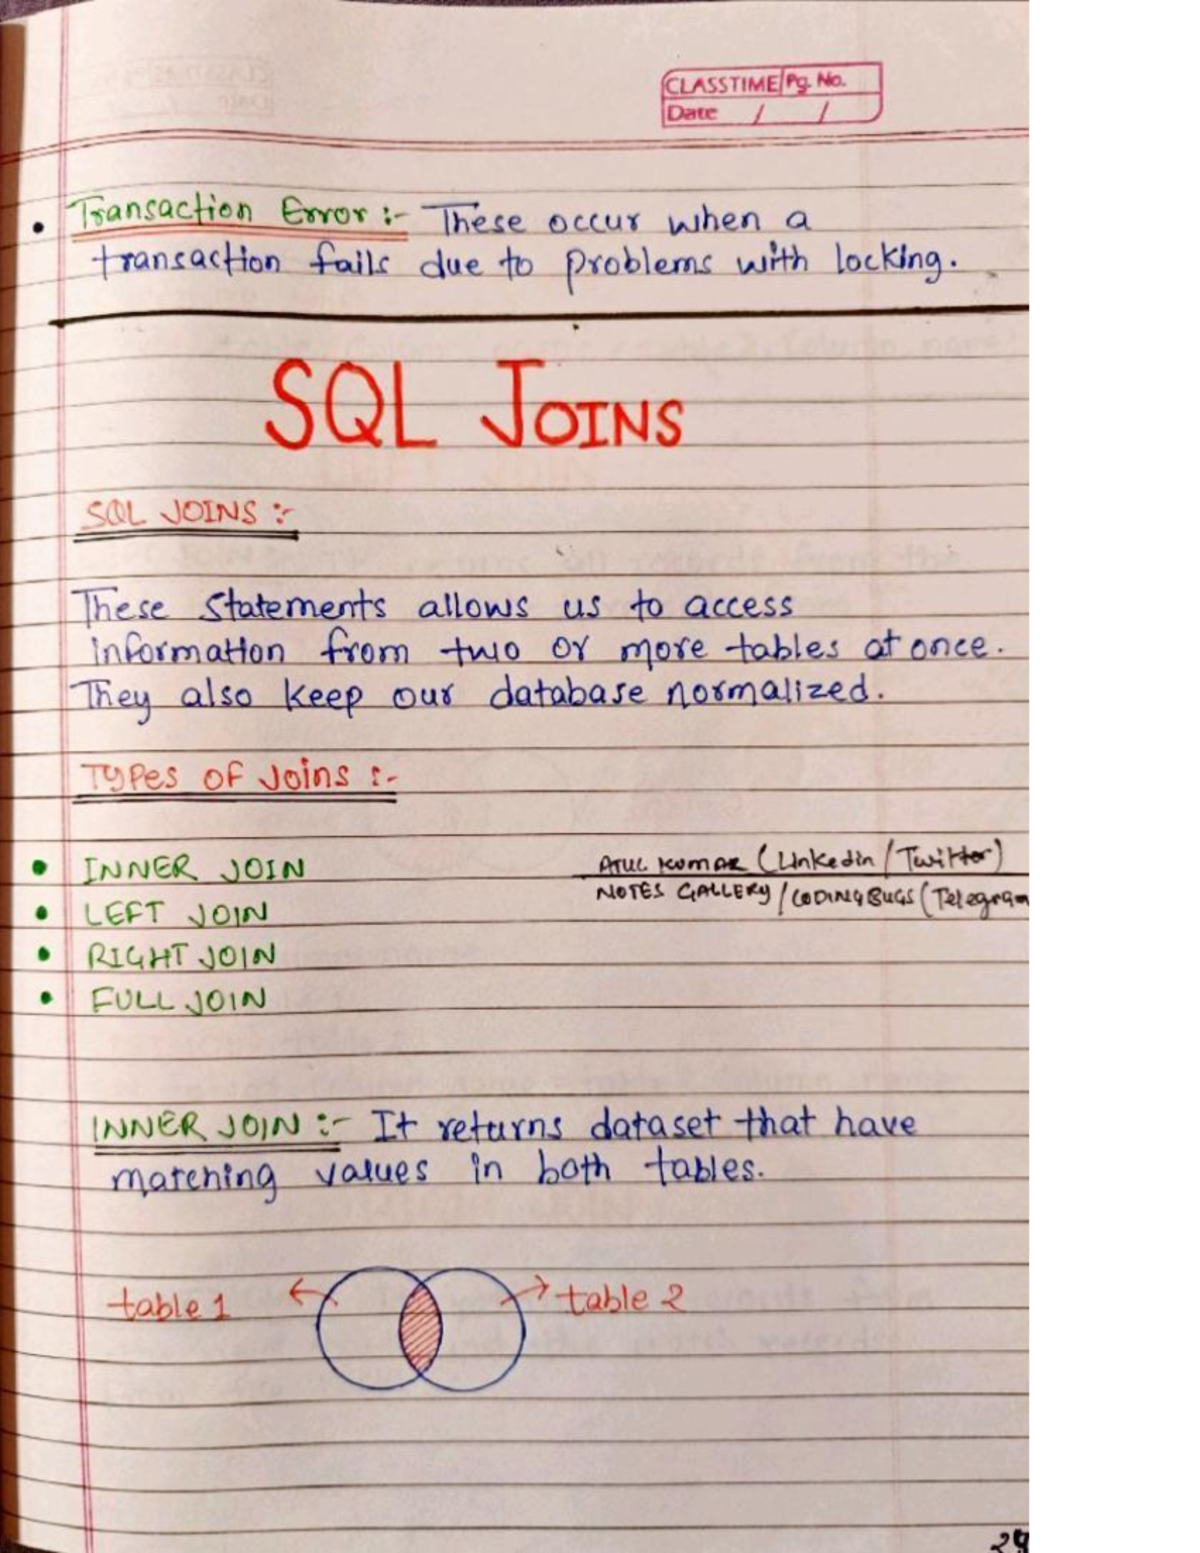 CLASSTIME Pg. No.
Date / /
• Transaction Error :- These occur when a
transaction fails due to problems with locking.
SQL JOINS
SQL JOINS :-
These statements allows us to access
information from two or more tables at once.
They also keep our database normalized.
Types of Joins :-
• INNER JOIN
• LEFT JOIN
• RIGHT JOIN
• FULL JOIN
ATUL KUMAR (Linkedin / Twitter)
NOTES GALLERY / CODINGBUGS (Telegram
INNER JOIN :- It returns dataset that have
matching values in both tables.
table 1
table 2
29